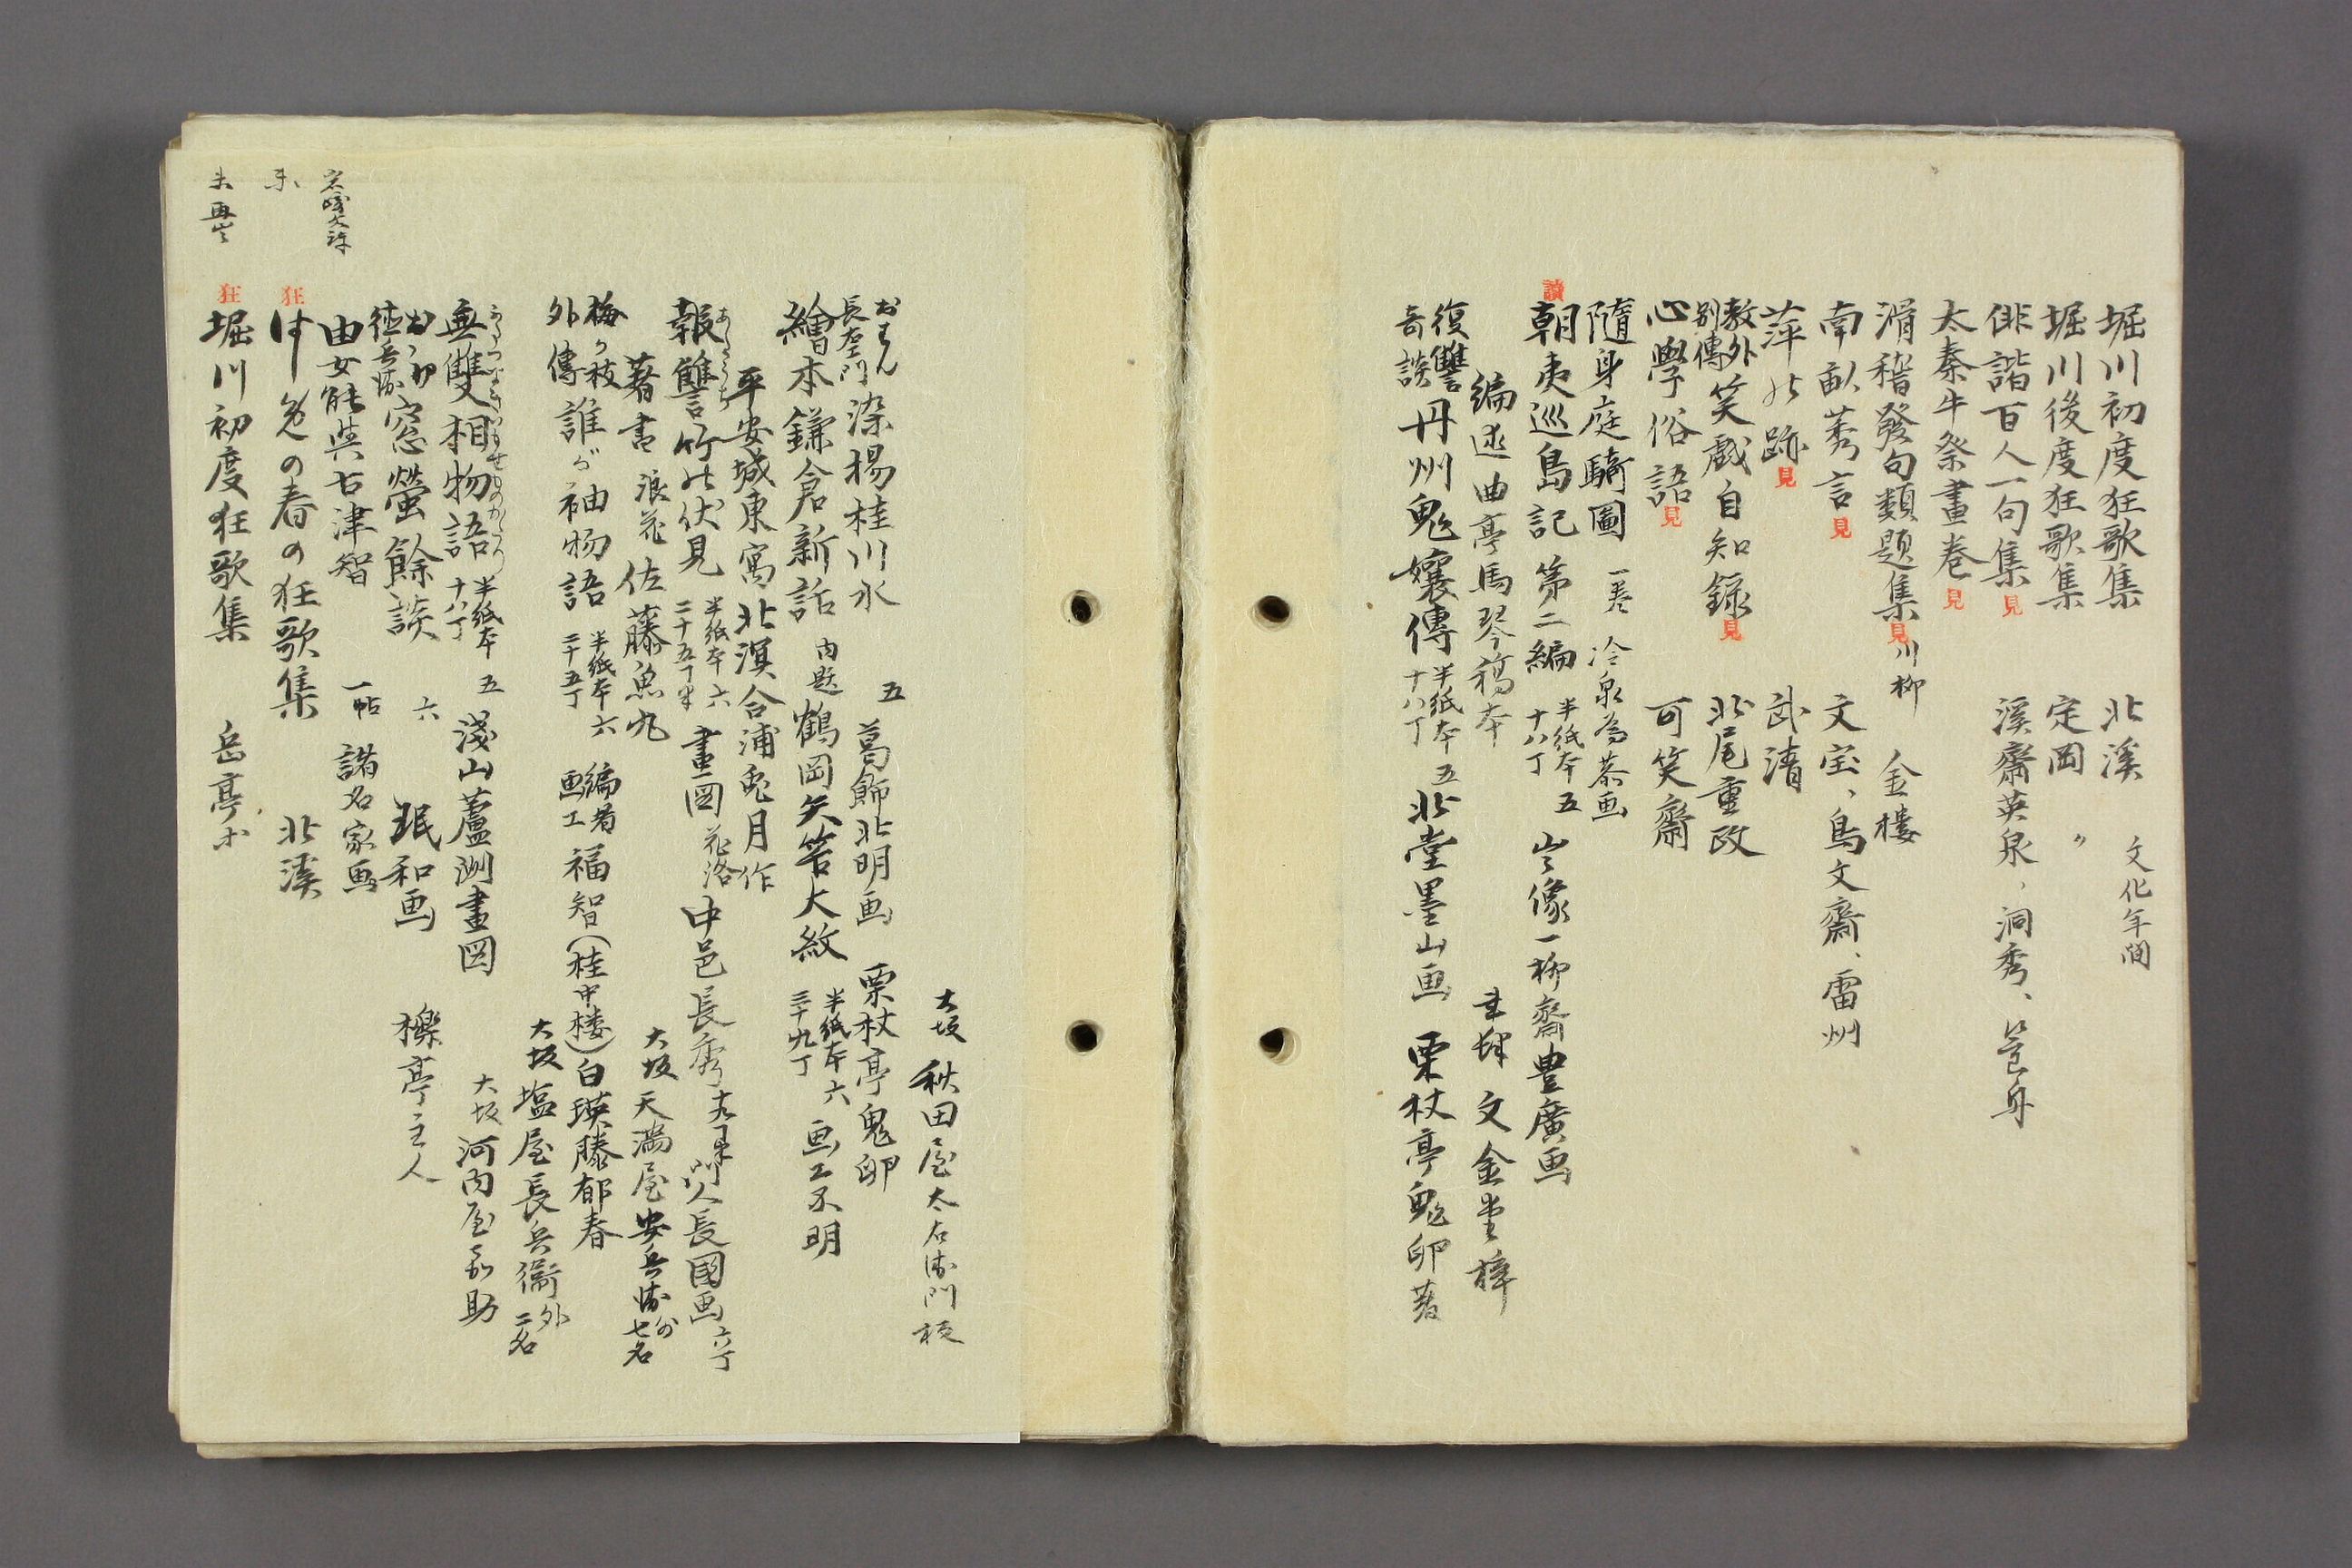 堀川初度狂歌集 北溪 文化年間
堀川後度狂歌集 定岡 〃
俳諧百人一句集 見 溪齋英泉、洞秀、
太秦牛祭畫巻 見
滑稽發句類題集 見 川柳 金樓
南畝莠言 見 文宝、鳥文齋、雷州
萍の跡 見 武清
教外別傳 笑戯自知録 見 北尾重政
心學俗語 見 可笑齋
隨身庭騎圖 一巻 冷泉為恭画
讀 朝夷巡島記 第二編 半紙本十八丁 五 肖像一柳齋豊廣画
編述 曲亭馬琴稿本 書肆 文金堂梓
復讐奇談 丹州鬼孃傳 半紙本十八丁 五 北堂墨山画 栗杖亭鬼卵著
大坂 秋田屋太右衛門板
おはん長右衛門 染楊桂川水 五 葛飾北明画 栗杖亭鬼卵
繪本鎌倉新話 内題 鶴岡矢筈大紋 半紙本三十九丁 六 画工不明
平安城東寓北溟合浦兎月作
報讐竹の伏見 半紙本二十五丁半 六 畫図 花洛 中邑長秀 門人長國画
著書 浪花 佐藤魚丸 大坂 天満屋安兵衛 外七名
梅が枝外傳 誰が袖物語 半紙本三十五丁 六 編者 画工 福智(桂中楼)白瑛 藤郁春
大坂 塩屋長兵衛 外二名
無雙相物語 半紙本十八丁 五 淺山蘆洲畫図
大坂 河内屋嘉助
窓螢餘談 六 珉和画 櫟亭主人
由女能與古津智 一帖 諸名家画
狂 の春の狂歌集 北溪
未再出 狂 堀川初度狂歌集 岳亭